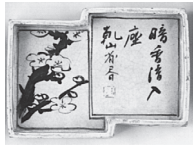 暗香浮入
座
乾山省書